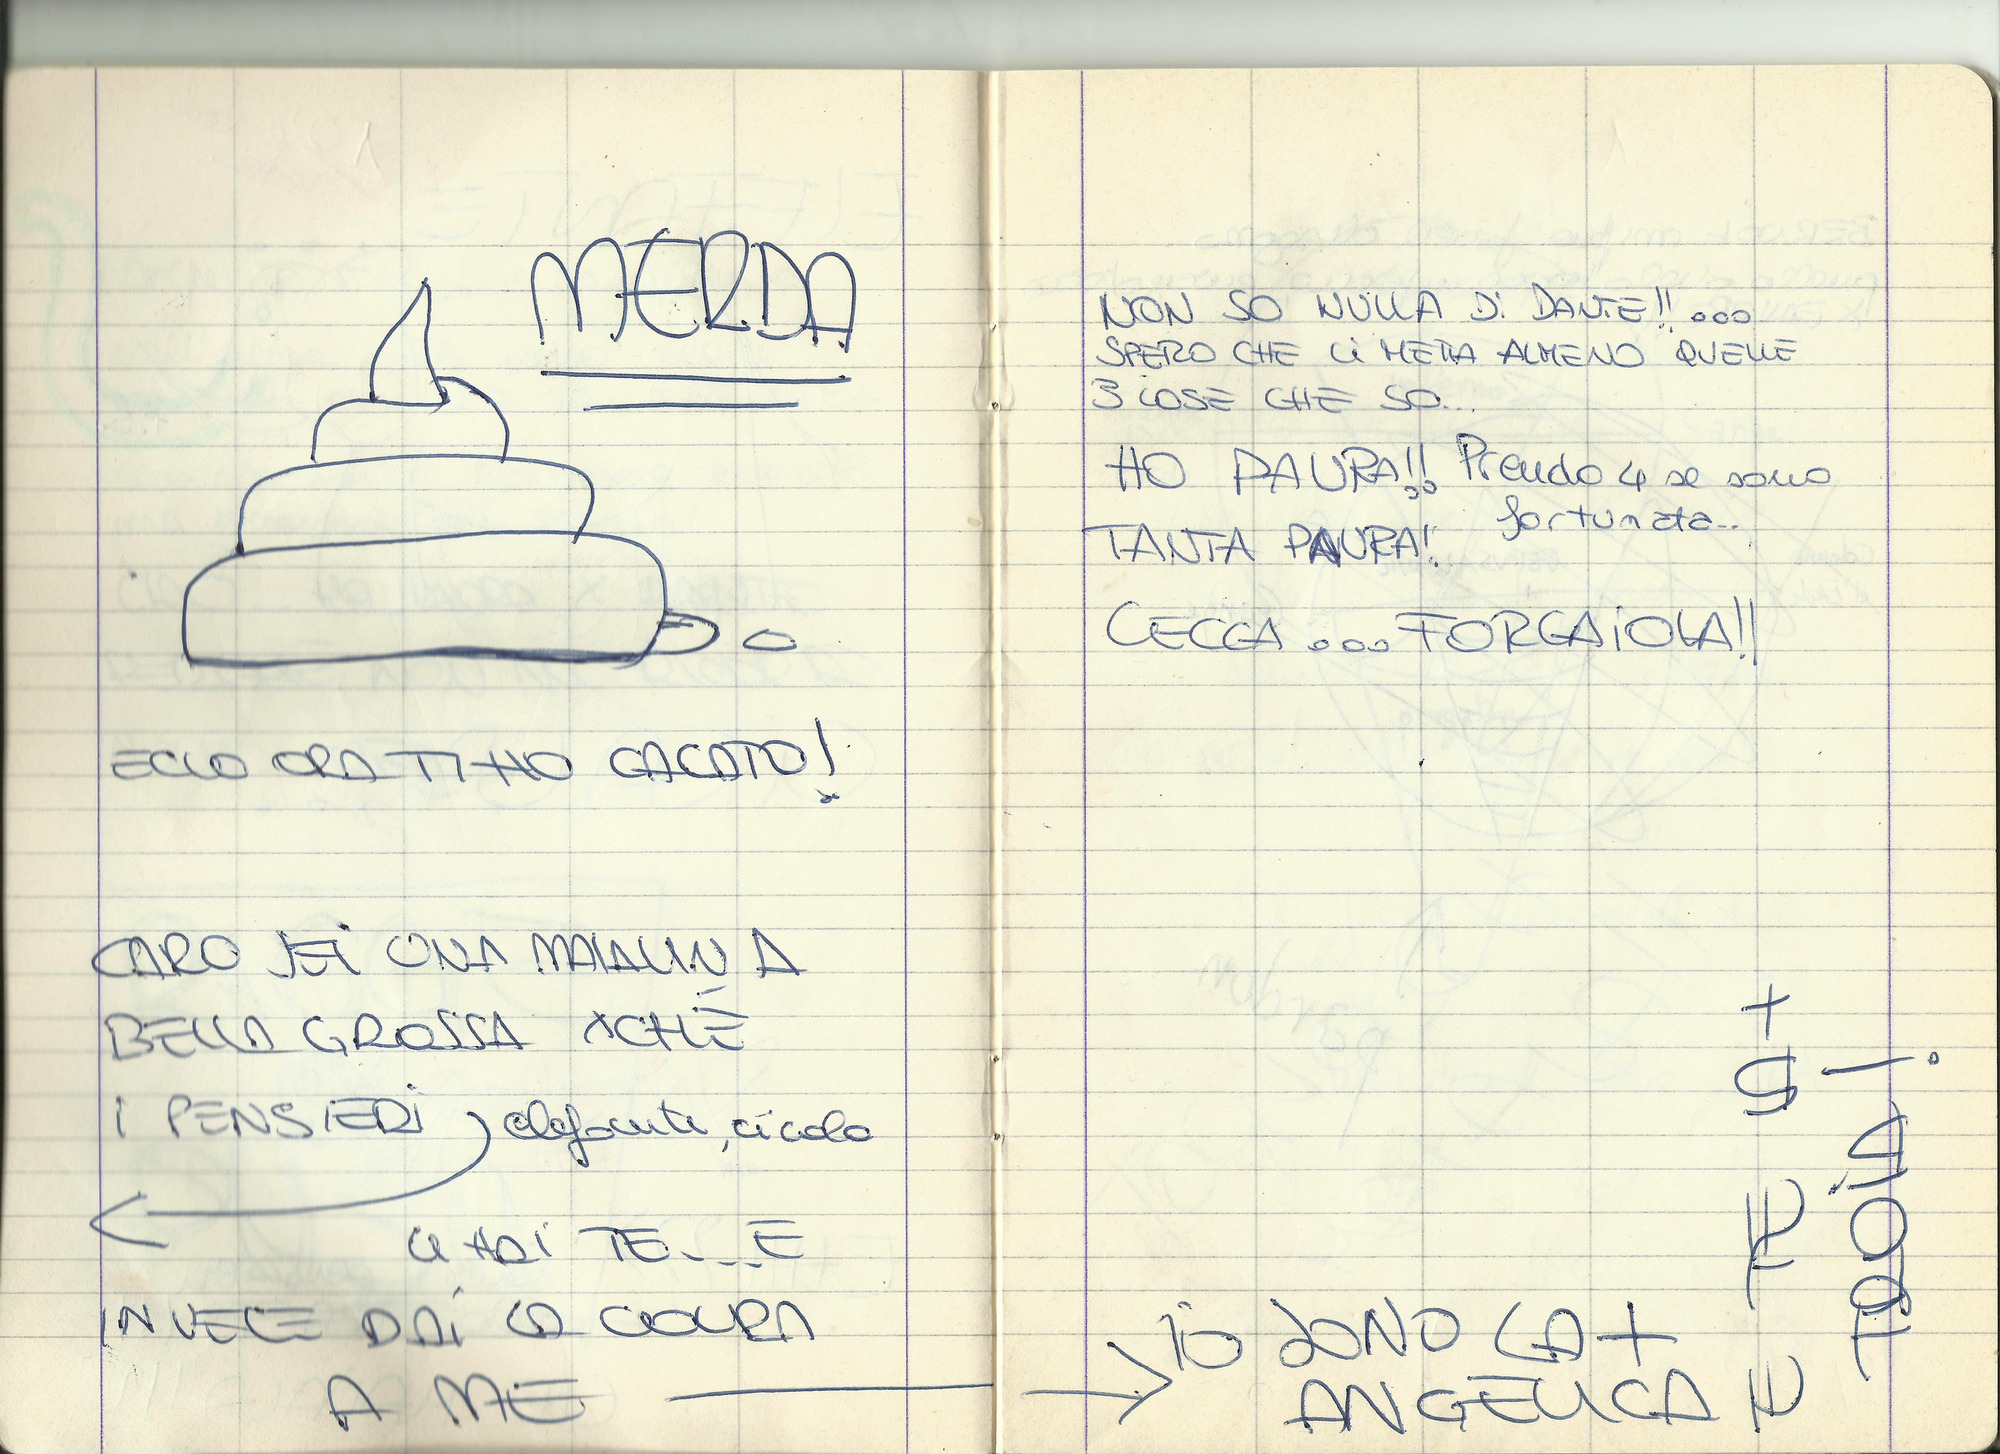 MERDA
ECCO ORA TI HO CACATO!
CARO SEI UNA MAIALINA
BELLA GROSSA XCHÈ
I PENSIERI elefante, cicolo
CI HAI TE...E
INVECE DAI LA COLPA
A ME
NON SO NULLA DI DANTE!!...
SPERO CHE CI METTA ALMENO QUELLE
3 COSE CHE SO...
HO PAURA!!.. Prendo 4 se sono
fortunata...
TANTA PAURA!!
CECCA ....FORCAIOLA!!
IO SONO LA +
ANGELICA E
+